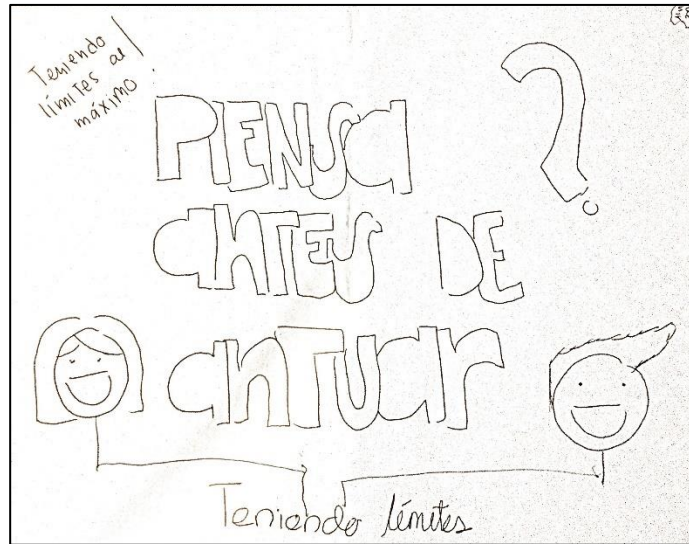 Teniendo
límites al
máximo
?
PIENSa
anTES DE
anTUar
Teniendo límites